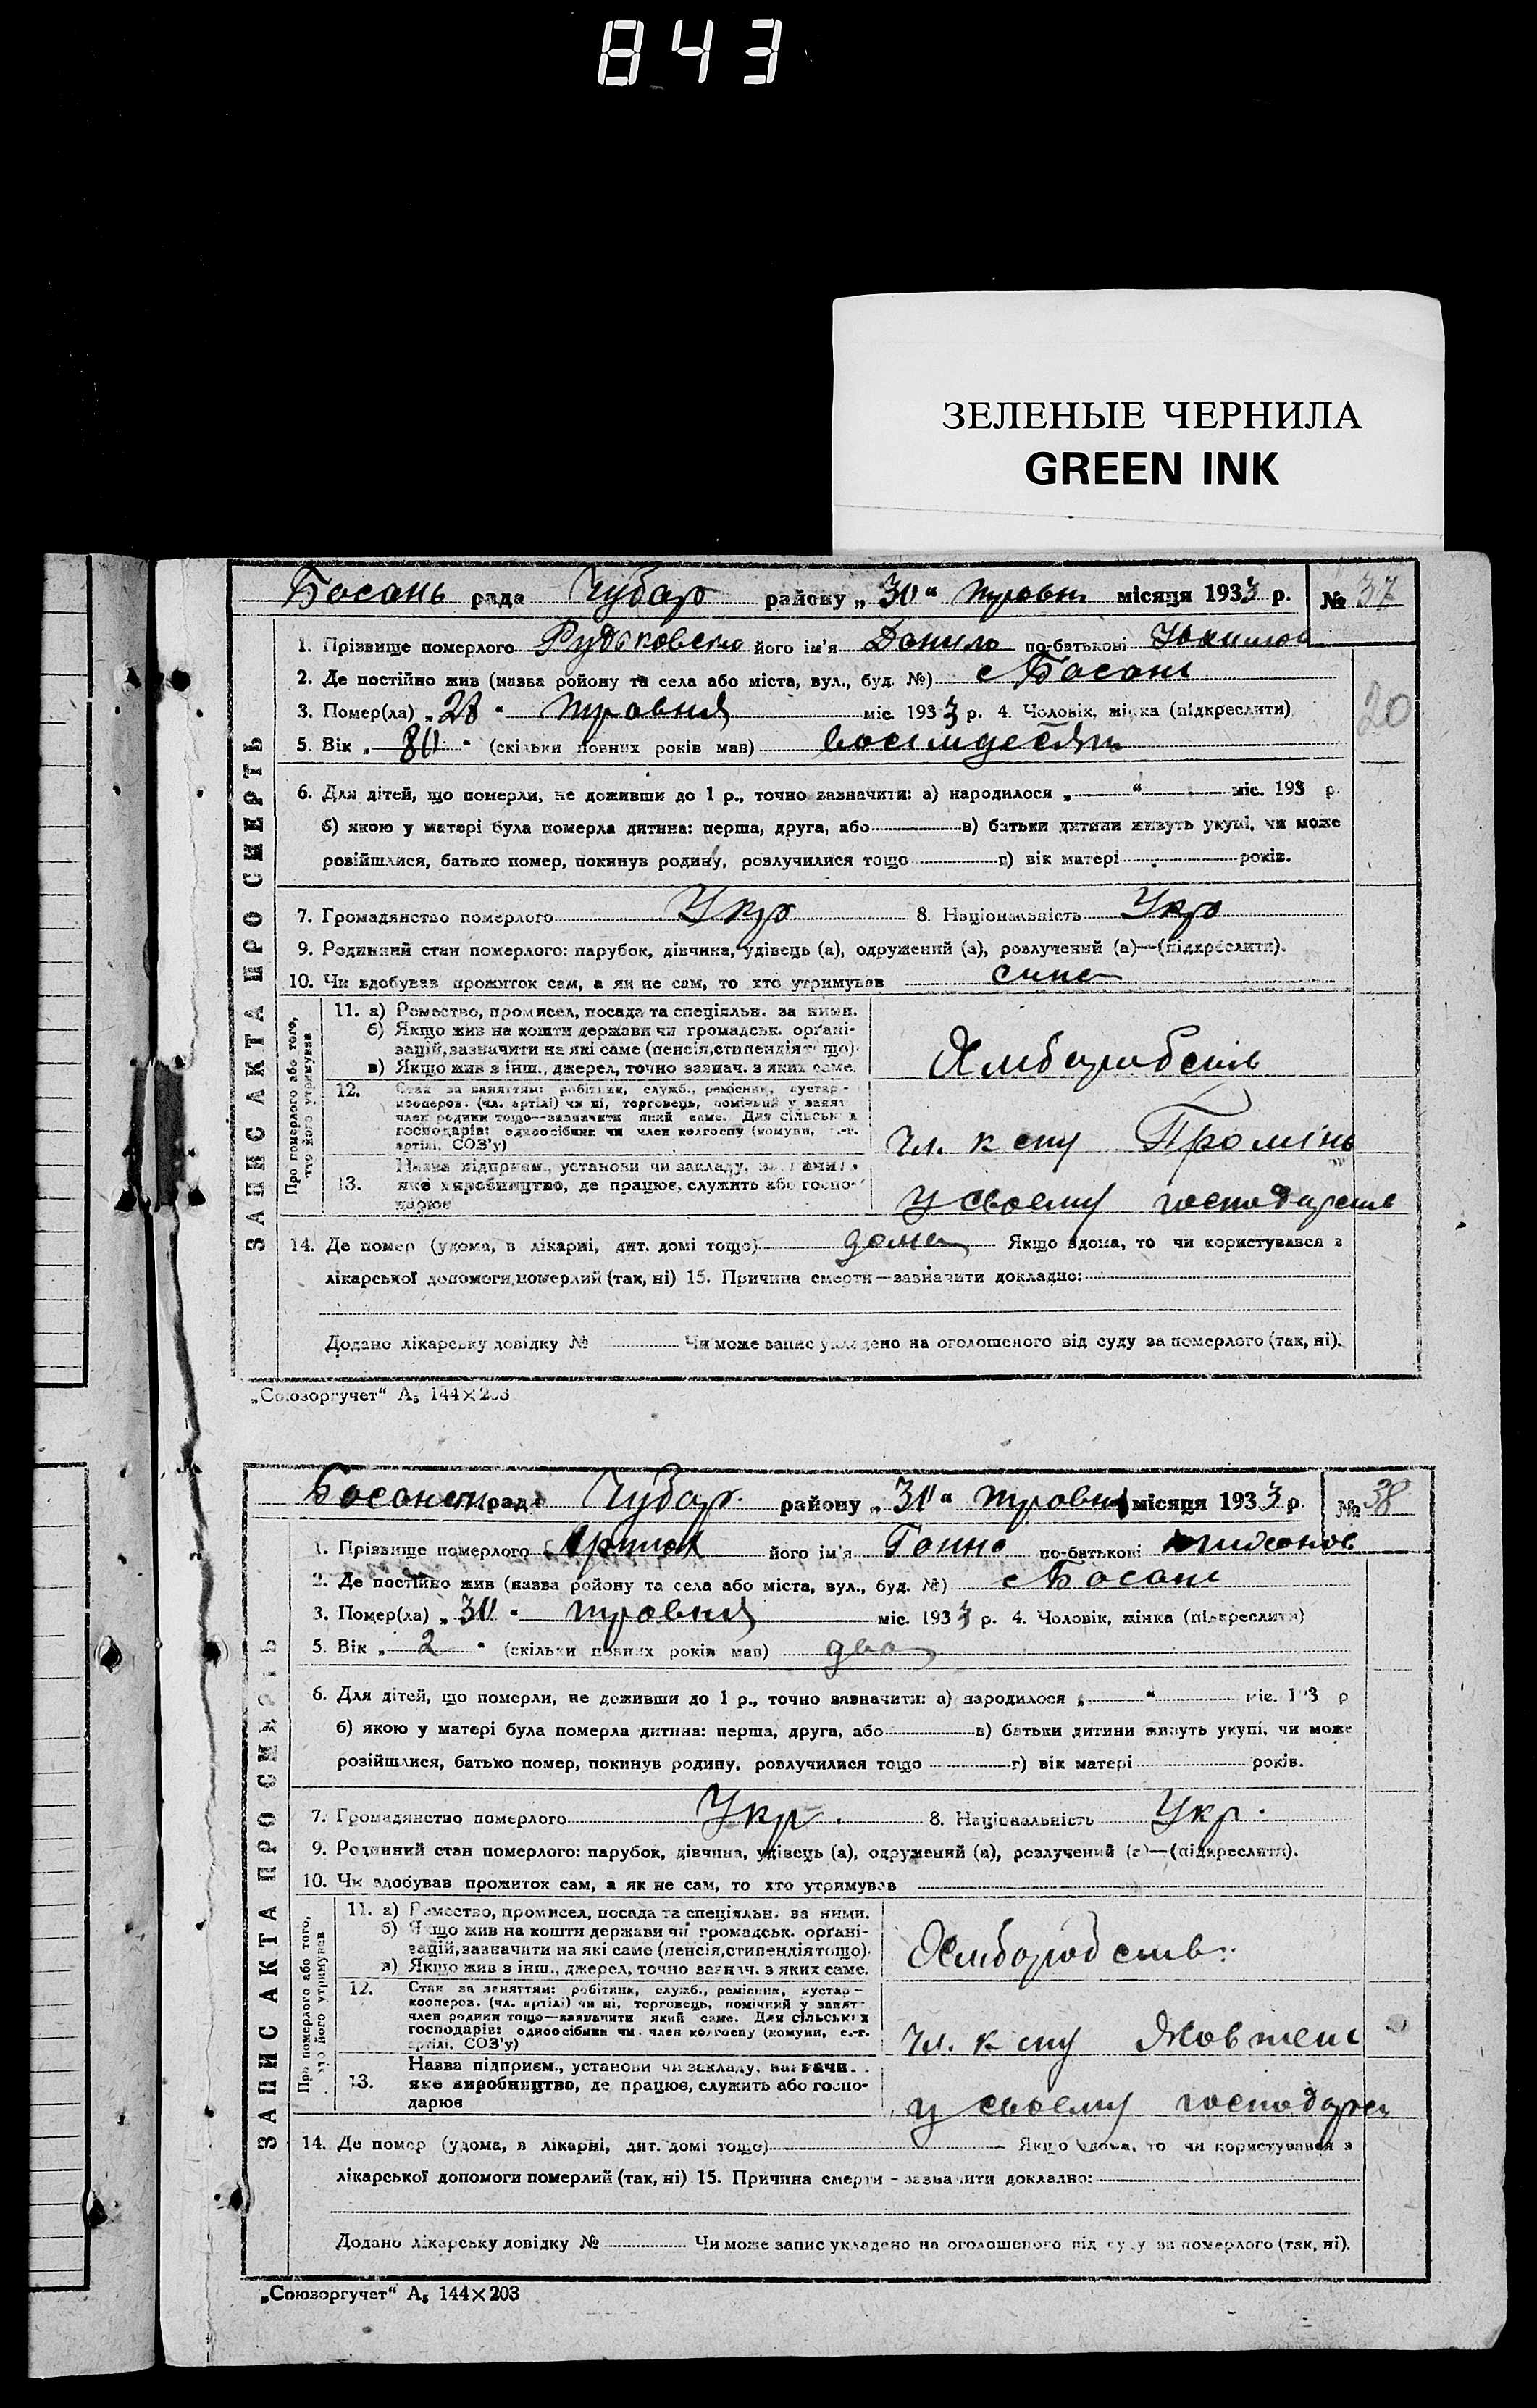 843
ЗЕЛЕНЫЕ ЧЕРНИЛА
GREEN INK
Босань рада Чубар району „30“ травн місяця 1933 р. № 37
1. Прізвище померлого його ім'я Данило по-батькові
2. Де постійно жив (назва ройону та села або міста, вул., буд. №) с Босань
20
3. Помер(ла) „28“ травня міс. 1933 р. 4. Чоловік, жінка (підкреслити)
5. Вік „80“ (скільки повних років мав) восімдесят
6. Для дітей, що померли, не доживши до 1 р., точно зазначити: а) народилося „ “ міс. 193 р.
б) якою у матері була померла дитина: перша, друга, або в) батьки дитини живуть укупі, чи може
розійшлися, батько помер, покинув родину, розлучилися тощо г) вік матері років.
7. Громадянство померлого Укр 8. Національність Укр
9. Родинний стан померлого: парубок, дівчина, удівець (а), одружений (а), розлучений (а)—(підкреслити).
10. Чи здобував прожиток сам, а як не сам, то хто утримував сине
ЗАПИС АКТА ПРО СМЕРТЬ
Про померлого або того, хто його утримував
11. а) Ремество, промисел, посада та спеціяльн. за ними.
б) Якщо жив на кошти держави чи громадськ. органі-
зацій, зазначити на які саме (пенсія, стипендія тощо).
в) Якщо жив з інш., джерел, точно зазнач. з яких саме.
Хліборобств
12. Стан за заняттям: робітник, служб., ремісник, кустар-
кооперов. (чл. артілі) чи ні, торговець, помічний у занят
член родини тощо—зазначити який саме. Для сільських
господарів: одноосібник чи член колгоспу (комуни, с.-г.
артілі, СОЗ'у)
чл. к спу Промінь
13. Назва підприєм., установи чи закладу, зазначи
яке виробництво, де працює, служить або госпо-
дарює
у своєму господарств
14. Де помер (удома, в лікарні, дит. домі тощо) дома Якщо вдома, то чи користувався з
лікарської допомоги померлий (так, ні) 15. Причина смерти—зазначити докладно:
Додано лікарську довідку № Чи може запис укладено на оголошеного від суду за померлого (так, ні).
„Союзоргучет“ А₅ 144×203
рада Чубар. району „30“ травня місяця 1933 р. № 38
1. Прізвище померлого його ім'я Ганна по-батькові
2. Де постійно жив (назва ройону та села або міста, вул., буд. №) с Босань
3. Помер(ла) „30“ травня міс. 1933 р. 4. Чоловік, жінка (підкреслити)
5. Вік „2“ (скільки повних років мав) два
6. Для дітей, що померли, не доживши до 1 р., точно зазначити: а) народилося „ “ міс. 193 р
б) якою у матері була померла дитина: перша, друга, або в) батьки дитини живуть укупі, чи може
розійшлися, батько помер, покинув родину, розлучилися тощо г) вік матері років.
7. Громадянство померлого Укр. 8. Національність Укр.
9. Родинний стан померлого: парубок, дівчина, удівець (а), одружений (а), розлучений (а)—(підкреслити).
10. Чи здобував прожиток сам, а як не сам, то хто утримував
ЗАПИС АКТА ПРО СМЕРТЬ
Про померлого або того, хто його утримував
11. а) Ремество, промисел, посада та спеціяльн. за ними.
б) Якщо жив на кошти держави чи громадськ. органі-
зацій, зазначити на які саме (пенсія, стипендія тощо).
в) Якщо жив з інш., джерел, точно зазнач. з яких саме.
Хліборобств.
12. Стан за заняттям: робітник, служб., ремісник, кустар-
кооперов. (чл. артілі) чи ні, торговець, помічний у занят
член родини тощо—зазначити який саме. Для сільських
господарів: одноосібник чи член колгоспу (комуни, с.-г.
артілі, СОЗ'у)
чл. к спу Жовтень
13. Назва підприєм., установи чи закладу, зазначи
яке виробництво, де працює, служить або госпо-
дарює
у своєму господарс
14. Де помер (удома, в лікарні, дит. домі тощо) Якщо вдома, то чи користувався з
лікарської допомоги померлий (так, ні) 15. Причина смерти—зазначити докладно:
Додано лікарську довідку № Чи може запис укладено на оголошеного від суду за померлого (так, ні).
„Союзоргучет“ А₅ 144×203